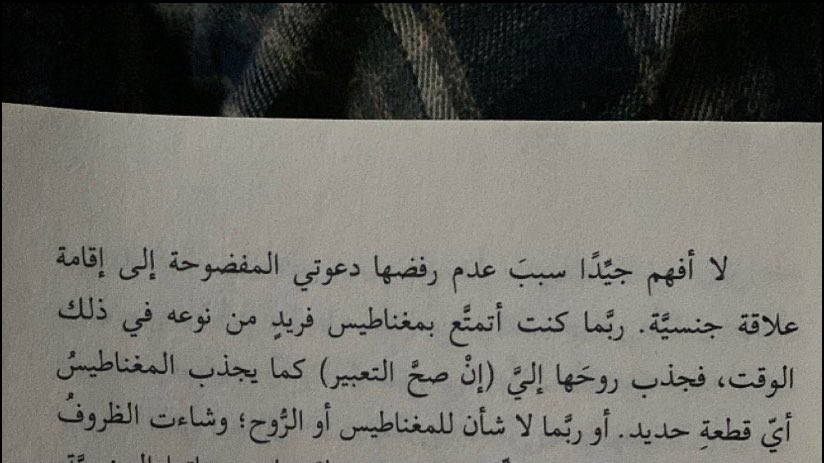 لا أفهم جيِّدًا سببَ عدم رفضها دعوتي المفضوحة إلى إقامة
علاقة جنسيَّة. ربَّما كنت أتمتَّع بمغناطيس فريدٍ من نوعه في ذلك
الوقت، فجذب روحَها إليَّ (إنْ صحَّ التعبير) كما يجذب المغناطيسُ
أيّ قطعةِ حديد. أو ربَّما لا شأن للمغناطيس أو الرُّوح؛ وشاءت الظروفُ